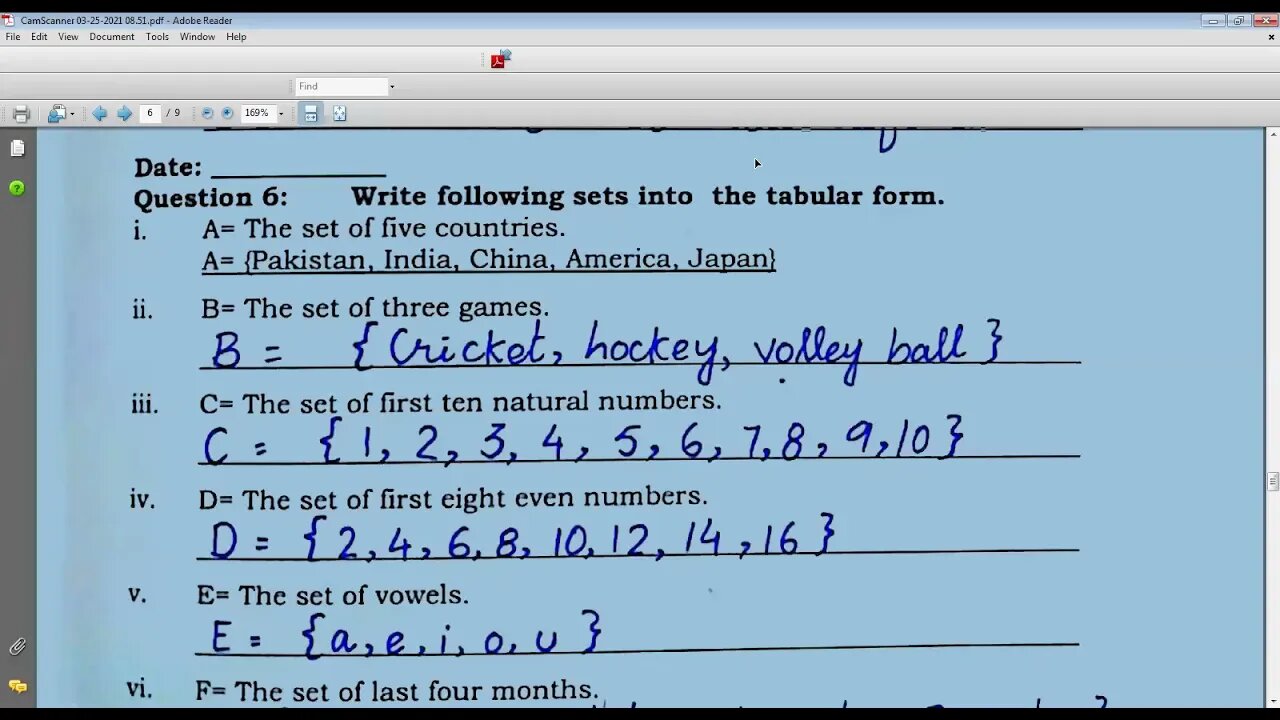 CamScanner 03-25-2021 08.51.pdf - Adobe Reader
File Edit View Document Tools Window Help
Find
6 / 9 169%
Date:
Question 6: Write following sets into the tabular form.
i. A= The set of five countries.
A= {Pakistan, India, China, America, Japan}
ii. B= The set of three games.
B = { Cricket, hockey, volley ball }
iii. C= The set of first ten natural numbers.
C = { 1, 2, 3, 4, 5, 6, 7, 8, 9, 10 }
iv. D= The set of first eight even numbers.
D = { 2, 4, 6, 8, 10, 12, 14, 16 }
v. E= The set of vowels.
E = { a, e, i, o, u }
vi. F= The set of last four months.